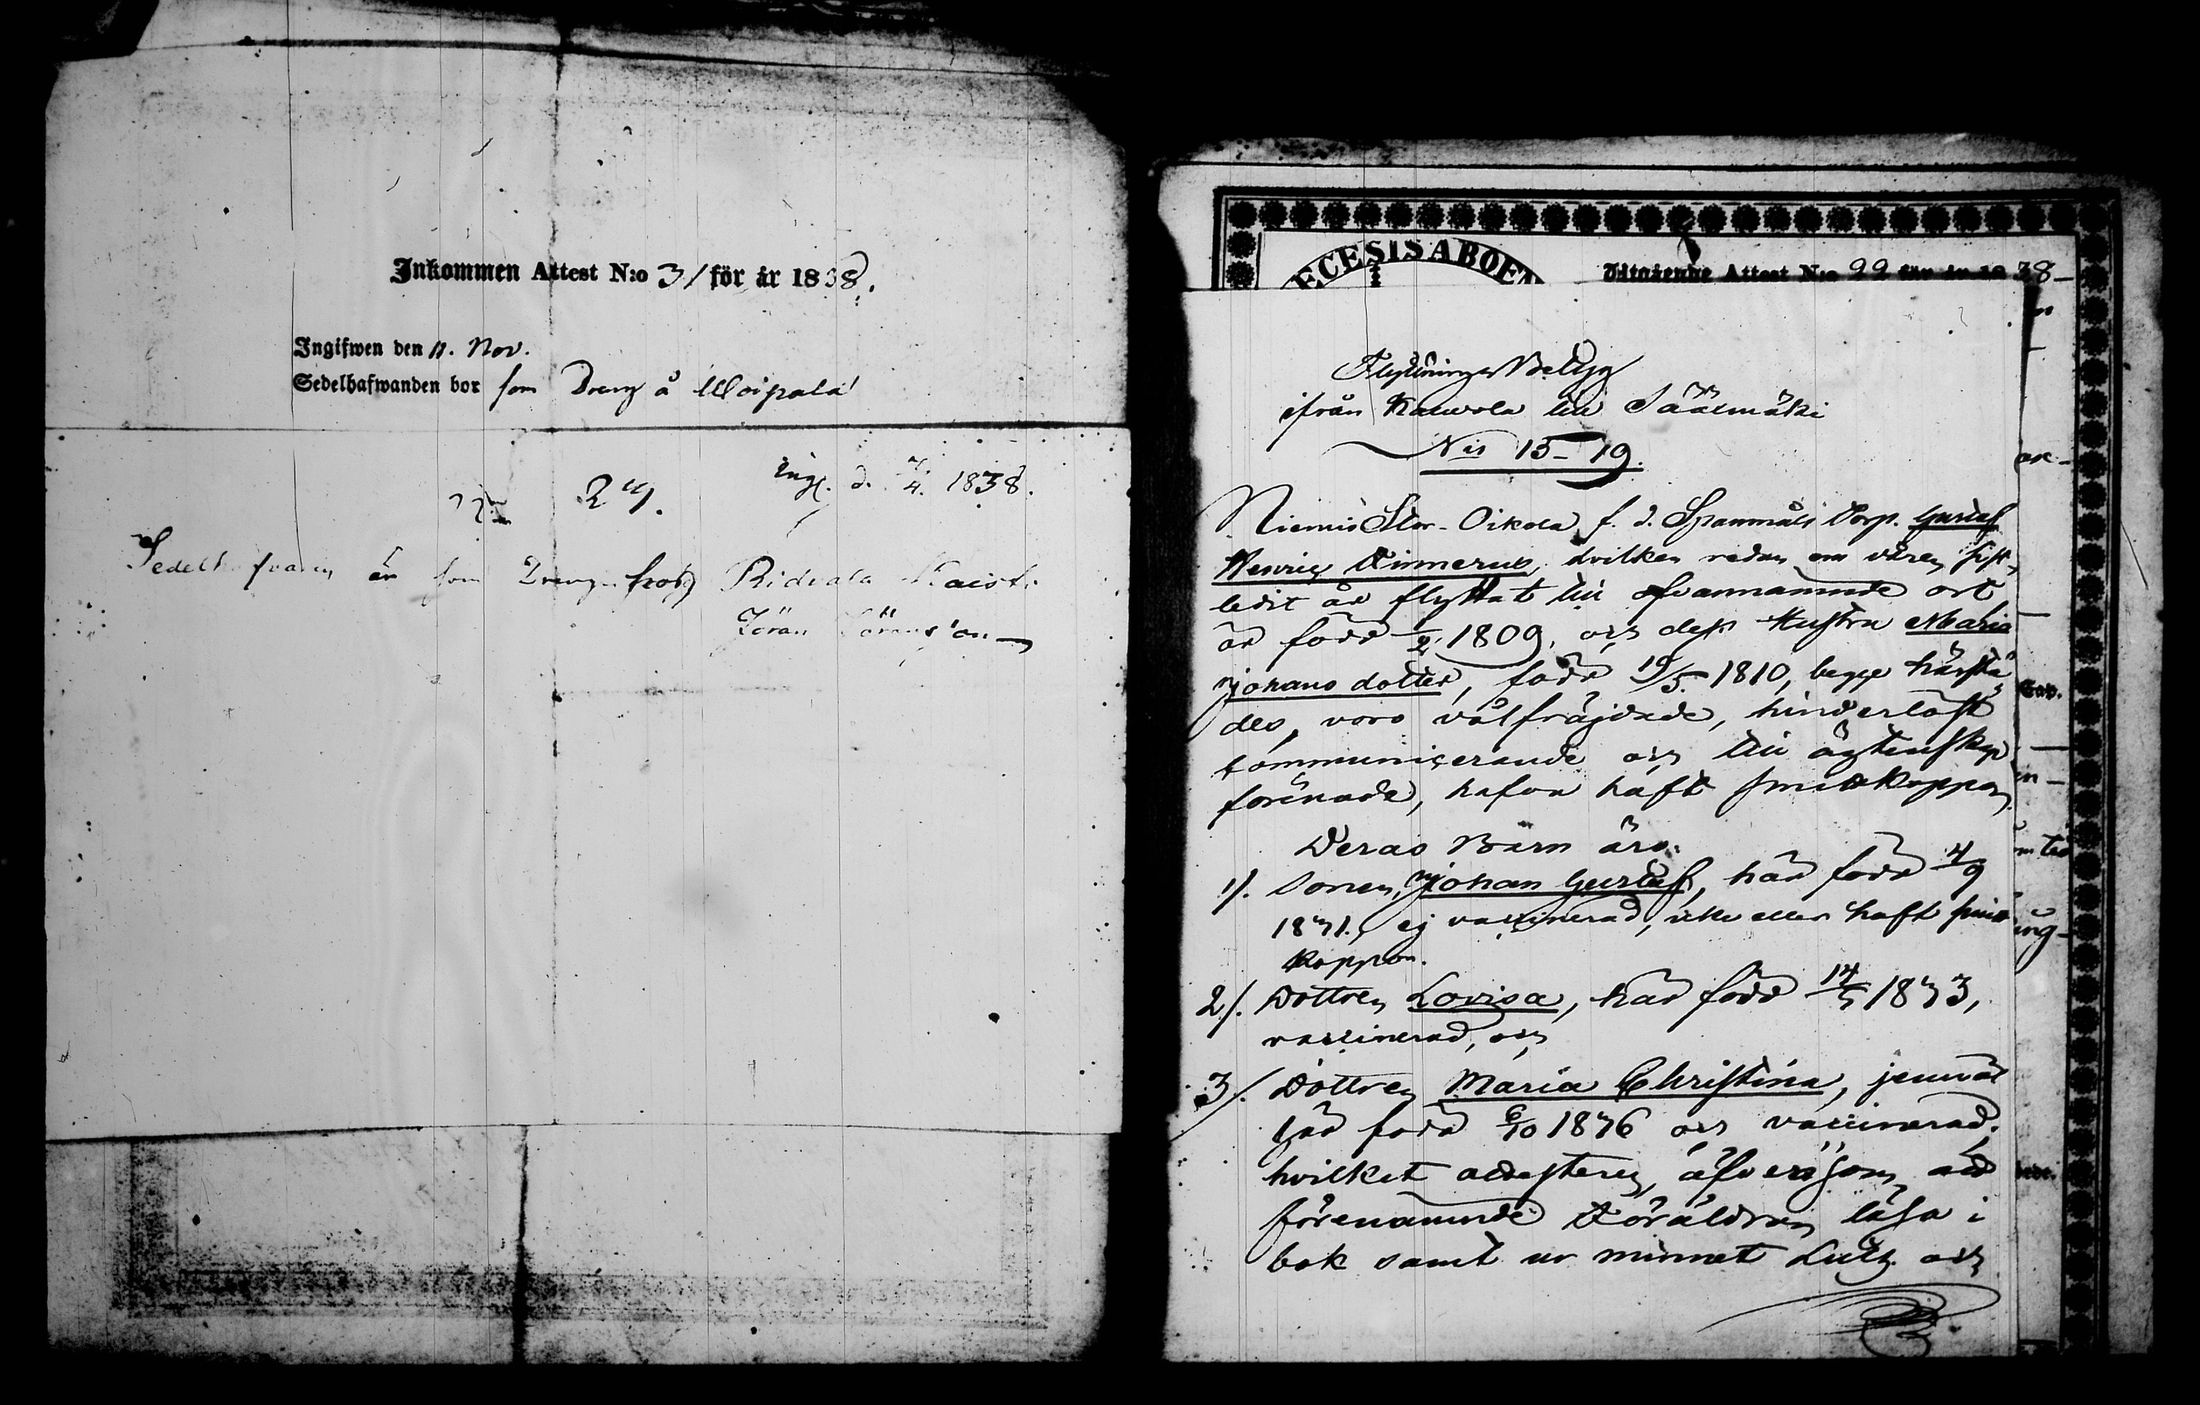 Inkommen Attest N:o 31 för år 1838.
Ingifwen den 11. Nov.
Sedelhafwanden bor som Dreng å Moipala
27. Ingl. d. 7/4. 1838.
Sedelhafvaren är som Dreng hos Ridvala Kaisti
Jöran Göransson
ECESIS ABOEN
Utgående Attest N:o 22 för år 1838
Flyttnings Betyg
ifrån Kauvola till Sääxmäki
N:is 15-19.
Niemis Stor-Oikola f. d. Spanmåls Torp. Gustaf
Henric Kinnerus, hvilken redan om våren sist
ledit år flyttat till ofvannämnde ort
är född 1809, och dess Hustru Maria
Johans dotter, född 19/5. 1810, begge härstä
des, voro välfräjdade, hinderlöst
communicerande och till ägtenskap
förenade, hafva haft smittkoppor,
Deras Barn äro:
1). Sonen, Johan Gustaf, här född 4/9
1831., ej vaccinerad, icke eller haft smitt
koppor.
2). Dottren Lovisa, här född 14/5 1833,
vaccinerad, och
3). Dottren Maria Christina, jemväl
här född 6/10 1836 och vaccinerad.
hvilket attesteras, äfvensom att
förenämnde Föräldrar läsa i
bok samt ur minnet Luth. och